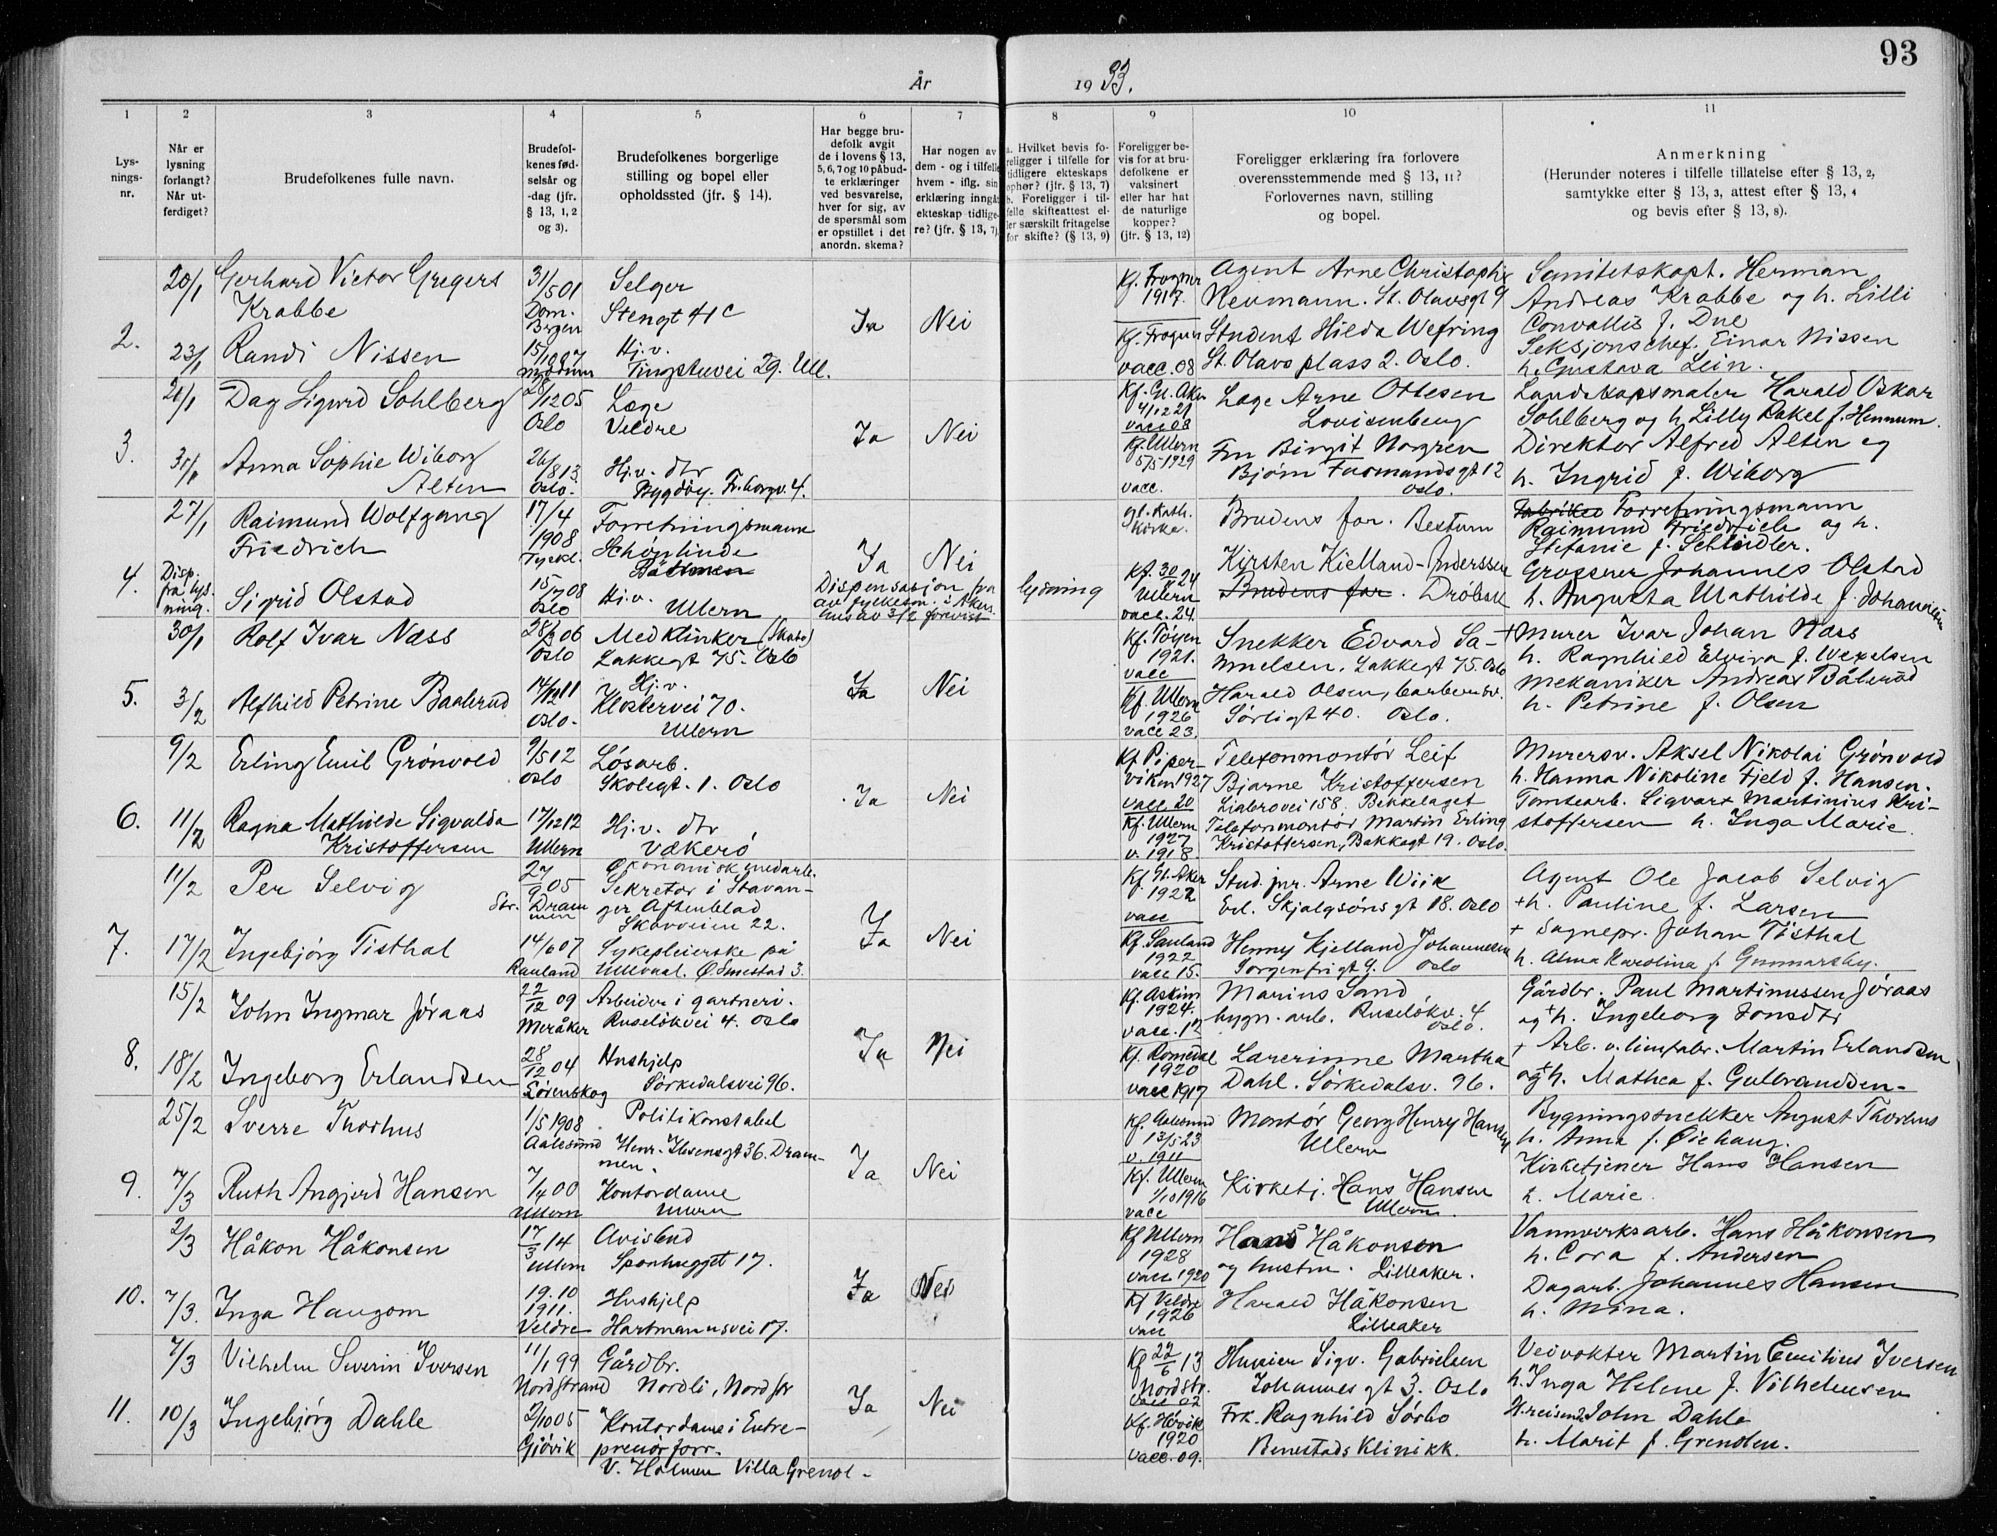 93
År
19 33.
1
2
3
4
5
6
7
8
9
10
11
Lys-
nings-
nr.
Når er
lysning
forlangt?
Når ut-
ferdiget?
Brudefolkenes fulle navn.
Brudefol-
kenes fød-
selsår og
-dag (jfr.
§ 13, 1, 2
og 3).
Brudefolkenes borgerlige
stilling og bopel eller
opholdssted (jfr. § 14).
Har begge bru-
defolk avgit
de i lovens § 13,
5, 6, 7 og 10 påbud-
te erklæringer
ved besvarelse,
hver for sig, av
de spørsmål som
er opstillet i det
anordn. skema?
Har nogen av
dem - og i tilfelle
hvem - iflg. sin
erklæring inngåt
ekteskap tidlige-
re? (jfr. § 13, 7).
a. Hvilket bevis fo-
religger i tilfelle for
tidligere ekteskaps
ophør? (jfr. § 13, 7)
b. Foreligger i til-
felle skifteattest el-
ler særskilt fritagelse
for skifte? (§ 13, 9)
Foreligger be-
vis for at bru-
defolkene er
vaksinert
eller har hat
de naturlige
kopper?
(jfr. § 13, 12)
Foreligger erklæring fra forlovere
overensstemmende med § 13, 11?
Forlovernes navn, stilling
og bopel.
Anmerkning
(Herunder noteres i tilfelle tillatelse efter § 13, 2,
samtykke efter § 13, 3, attest efter § 13, 4
og bevis efter § 13, 8).
2.
20/1
Gerhard Victor Gregers
Krabbe
31/5 01
Dom.
Bergen
Selger
Stengt 41c
Ja
Nei
Kf. Frogner
1917.
Agent Arne Christopher
Neumann. St. Olavsgt 9
Sanitetskapt. Herman
Andreas Krabbe og h. Lilli
Convallis f. Due
23/1
Randi Nissen
15/10 07
Modum
Hj.v.
Tingstuvei 29. Ull.
Kf. Frogner
vacc. 08
Student Hilda Wefring
St. Olavs plass 2. Oslo.
Seksjonschef. Einar Nissen
h. Gustava Lein.
3.
Dag Sigurd Sohlberg
28/12 05
Oslo
Læge
Veldre
Ja
Nei
Kf. Gl. Aker
4/12 21
vacc 08
Læge Arne Ottesen
Lovisenberg
Landskapsmaler Harald Oskar
Sohlberg og h Lilly Rakel f. Hennum.
31/1
Anna Sophie Wiborg
Alten
26/8 13
Oslo.
Hj.v. dtr
Bygdöy. Fr.borgv. 4.
Kf. Ullern
5/5 1929
vacc.
Fru Birgit Norgren
Bjørn Farmandsgt 12
Oslo.
Direktør Alfred Alten og
h. Ingrid f. Wiborg
4.
27/1
Raimund Wolfgang
Friedrich
17/4
1908
Tyskl.
Forretningsmann
Schønlinde
Böhmen
Ja
Nei
gl. Kath.
Kirke.
Brudens far. Bestum
Fabrikei Forretningsmann
Raimund Friedrich og h.
Stefanie f. Schindler.
Disp.
fra lys-
ning.
Sigrid Olstad
15/7 08
Oslo
Hj.v.
Ullern
Dispensasjon fra
av fylkesm. i Akers-
hus av 3/2 forevist
lysning
Kf. 30/11 24
Ullern
vacc. 24.
Kirsten Kielland-Anderssen
Brudens far. Dröbak
Grosserer Johannes Olstad
h. Augusta Mathilde f. Johannsen
5.
30/1
Rolf Ivar Næss
28/2 06
Oslo
Medklinker (Skabo)
Lakkegt 75. Oslo
Ja
Nei
Kf. Tøyen
1921.
vacc
Snekker Edvard Sa-
muelsen. Lakkegt 75. Oslo
+ Murer Ivar Johan Næss
h. Ragnhild Elvira f. Wexelsen
3/2
Alfhild Petrine Baalerud
14/12 11
Oslo.
Hj.v.
Klostervei 70.
Ullern
Kf. Ullern
1926
vacc 23.
Harald Olsen, barbersv.
Sørligt 40. Oslo.
Mekaniker Andreas Bålerud
h. Petrine f. Olsen
6.
9/2
Erling Emil Grönvold
9/5 12
Oslo
Løsarb.
Skolegt. 1. Oslo
Ja
Nei
Kf. Piper-
viken 1927
vacc. 20
Telefonmontör Leif
Bjarne Kristoffersen
Liabrovei 158. Bekkelaget
Murersv. Aksel Nikolai Grønvold
h. Hanna Nikoline Fjeld f. Hansen.
11/2
Ragna Mathilde Sigvalda
Kristoffersen
17/12 12
Ullern
Hj.v. dtr
Vækerö
Kf. Ullern
1927
v. 1918.
Telefonmontör Martin Erling
Kristoffersen, Bakkegt 19. Oslo.
Tomtearb. Sigvart Martinius Kri-
stoffersen h. Inga Marie.
7.
11/2
Per Selvig
27/9 05
Str. Dram-
men
Økonomisk medarb.
Sekretær i Stavan-
ger Aftenblad
Skovveien 22.
Ja
Nei
Kf. Gl. Aker
1922
vacc
Stud. jur. Arne Wiik
Erl. Skjalgsönsgt 18. Oslo
Agent Ole Jacob Selvig
+h. Pauline f. Larsen
17/2
Ingebjörg Tisthal
14/6 07
Rauland
Sykepleierske på
Ullevaal. Ø Smestad 3.
Kf. Sauland
1922
vacc 15.
Henny Kjelland Johannesen
Sorgenfrigt 9. Oslo
+ Sognepr. Johan Tisthal
h. Alma Karolina f. Gunnarsby.
8.
15/2
John Ingmar Jøraas
22/12 09
Meråker
Arbeider i gartneri.
Ruseløkvei 4. Oslo
Ja
Nei
Kf. Askim
1924.
vacc. 12
Marius Sand
bygn. arb. Ruselökv. 4
Oslo.
Gårdbr. Paul Martinussen Jøraas
og +h. Ingeborg Jonsdtr
18/2
Ingeborg Erlandsen
28/12 04
Lørenskog
Hushjelp
Sørkedalsvei 96.
Kf. Romedal
1920
vacc 1917
Lærerinne Martha
Dahl. Sørkedalsv. 96.
+ Arb. v. limfabr. Martin Erlandsen
og +h. Mathea f. Gulbrandsen-
9.
25/2
Sverre Thorhus
1/5 1908
Aalesund
Politikonstabel
Henr. Ibsensgt 36. Dram-
men.
Ja
Nei
Kf. Aalesund
13/5 23
v. 1911
Montör Georg Henry Hansen
Ullern
Bygningssnekker August Thorhus
h. Anna f. Øiehaug.
7/3
Ruth Angjerd Hansen
7/4 00
Ullern
Kontordame
Ullern
Kf. Ullern
1/10 1916
vacc
Kirketj. Hans Hansen
Ullern.
Kirketjener Hans Hansen
h. Marie.
10.
2/3
Håkon Håkonsen
17/3 14
Ullern
Avisbud
Sponhugget 17.
Ja
Nei
Kf Ullern
1928
vacc 1920
Hans Håkonsen
og hustru. Lilleaker.
Vannverksarb. Hans Håkonsen
h. Cora f. Andersen
7/3.
Inga Haugom
19.10
1911.
Veldre
Hushjelp
Hartmannsvei 17.
Kf Veldre
1926
vacc
Harald Håkonsen
Lilleaker
Dagarb. Johannes Hansen
h. Mina.
11.
7/3
Vilhelm Severin Iversen
11/1 99
Nordstrand
Gårdbr.
Nordli, Nordstr
Ja
Nei
Kf 22/6 13
Nordstr.
vacc 02
Huseier Sigv. Gabrielsen
Johannes gt 3. Oslo
Veivokter Martin Emilius Iversen
h. Inga Helene f. Vilhelmsen
10/3
Ingebjörg Dahle
2/10 05
Gjövik
Kontordame i Entre-
prenörforr.
V. Holmen Villa Grenol-
Kf. Høvik
1920
vacc. 09.
Frk. Ragnhild Sørbo
Benestads Klinikk.
H.reisende John Dahle
h. Marit f. Grendlen.